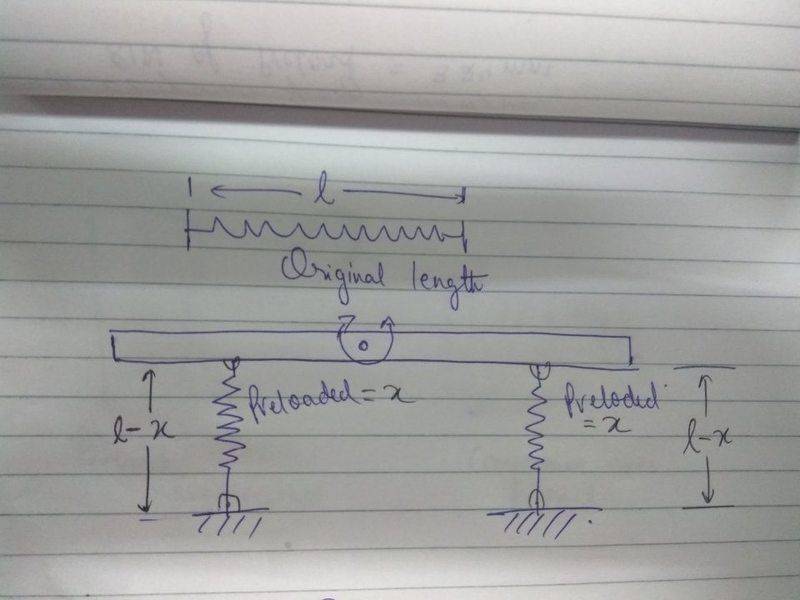 l
Original length
Preloaded = x
Preloded
= x
l - x
l - x